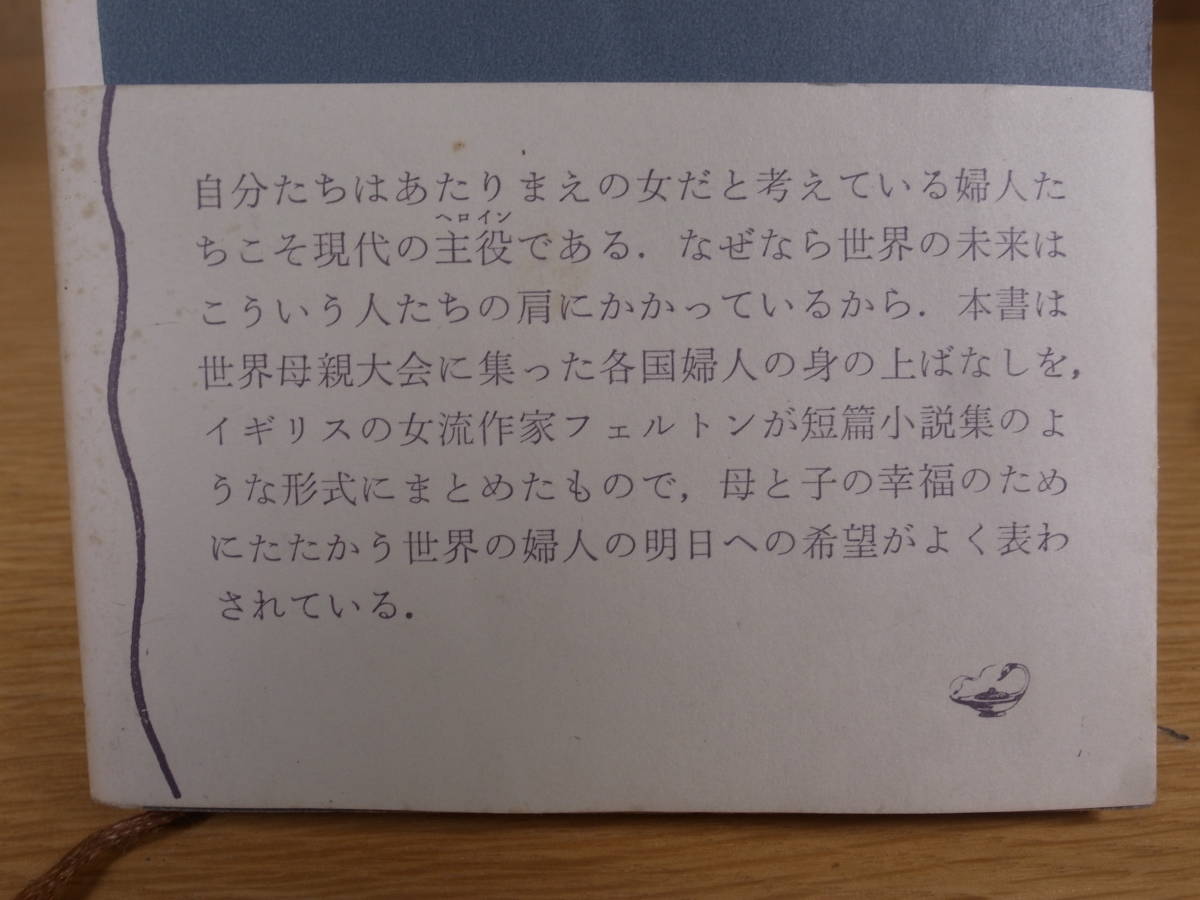 自分たちはあたりまえの女だと考えている婦人た
ヘロイン
ちこそ現代の主役である．なぜなら世界の未来は
こういう人たちの肩にかかっているから．本書は
世界母親大会に集った各国婦人の身の上ばなしを，
イギリスの女流作家フェルトンが短篇小説集のよ
うな形式にまとめたもので，母と子の幸福のため
にたたかう世界の婦人の明日への希望がよく表わ
されている．